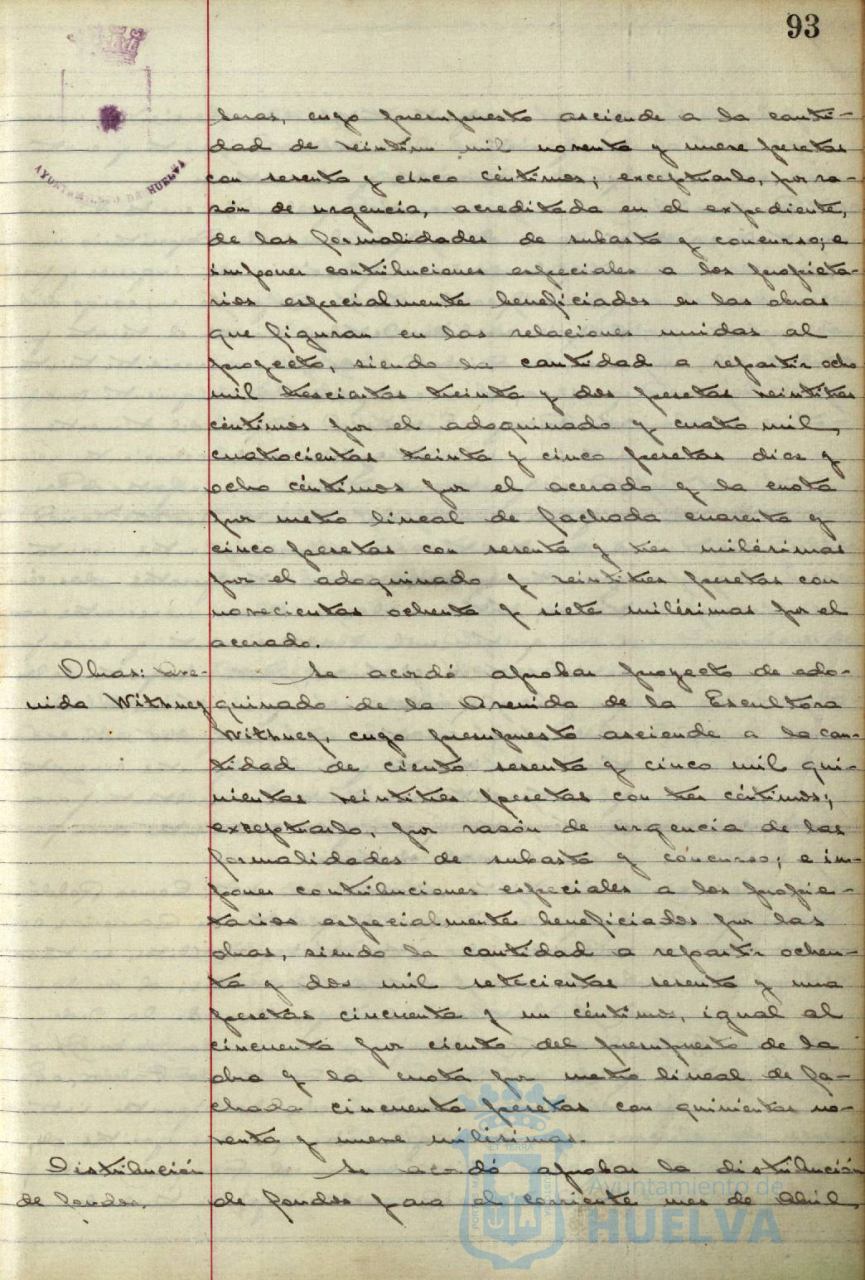 93
AYUNTAMIENTO DE HUELVA
leras, cuyo presupuesto asciende a la canti-
dad de veintiun mil noventa y nueve pesetas
con sesenta y cinco céntimos; exceptuarlo, por ra-
zón de urgencia, acreditada en el expediente,
de las formalidades de subasta y concurso; e
imponer contribuciones especiales a los propieta-
rios especialmente beneficiados en las obras
que figuran en las relaciones unidas al
proyecto, siendo la cantidad a repartir ocho
mil trescientas treinta y dos pesetas veintitres
céntimos por el adoquinado y cuatro mil,
cuatrocientas treinta y cinco pesetas diez y
ocho céntimos por el acerado y la cuota
por metro lineal de fachada cuarenta y
cinco pesetas con sesenta y tres milésimas
por el adoquinado y veintitres pesetas con
novecientas ochenta y siete milésimas por el
acerado.
Obras: Ave-
nida Withney
Se acordó aprobar proyecto de ado-
quinado de la Avenida de la Escultora
Withney, cuyo presupuesto asciende a la can-
tidad de ciento sesenta y cinco mil qui-
nientas veintitres pesetas con tres céntimos;
exceptuarlo, por razón de urgencia de las
formalidades de subasta y concurso; e im-
poner contribuciones especiales a los propie-
tarios especialmente beneficiados por las
obras, siendo la cantidad a repartir ochen-
ta y dos mil setecientas sesenta y una
pesetas cincuenta y un céntimos, igual al
cincuenta por ciento del presupuesto de la
obra y la cuota por metro lineal de fa-
chada cincuenta pesetas con quinientas no-
venta y nueve milésimas.
Distribución
de fondos.
Se acordó aprobar la distribución
de fondos para el corriente mes de Abril,
Ayuntamiento de
HUELVA